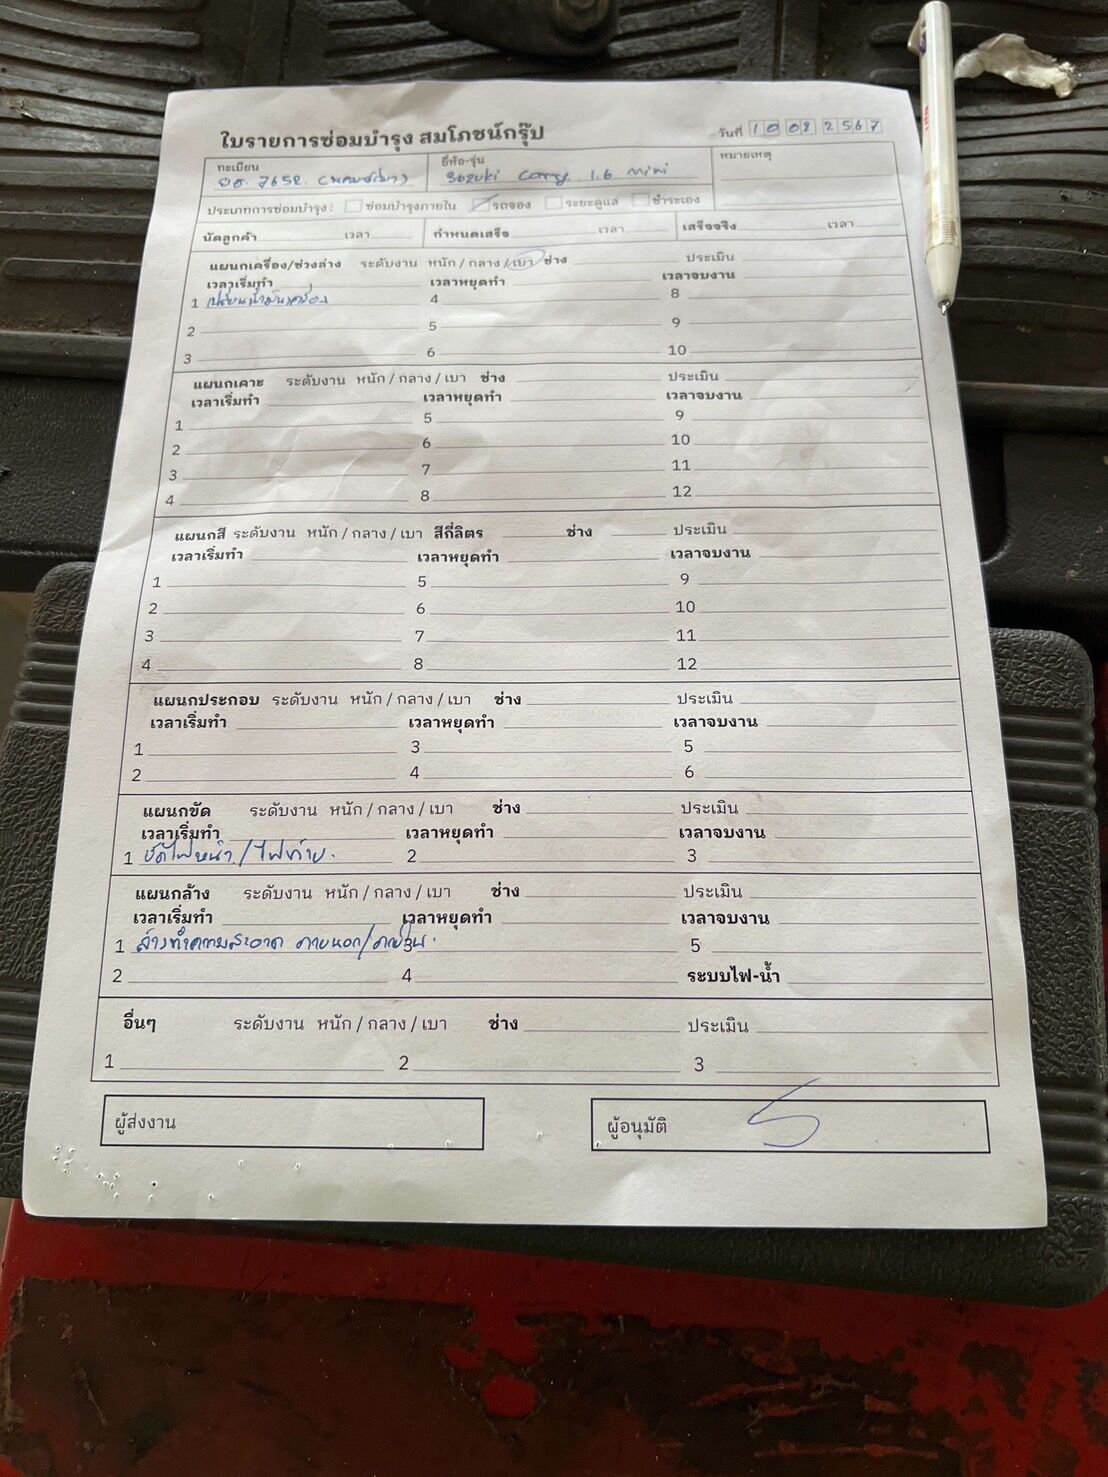 ใบรายการซ่อมบำรุง สมโภชน์กรุ๊ป
วันที่ 10 02 2567
ทะเบียน
ยี่ห้อ-รุ่น
หมายเหตุ
7652 Suzuki Carry 1.6 mini
ประเภทการซ่อมบำรุง: ซ่อมบำรุงภายใน รถจอง ระยะดูแล ชำระเอง
นัดลูกค้า เวลา กำหนดเสร็จ เวลา เสร็จจริง เวลา
แผนกเครื่อง/ช่วงล่าง ระดับงาน หนัก / กลาง / เบา ช่าง ประเมิน
เวลาเริ่มทำ เวลาหยุดทำ เวลาจบงาน
1 เปลี่ยนน้ำมันเครื่อง 4 8
2 5 9
3 6 10
แผนกเคาะ ระดับงาน หนัก / กลาง / เบา ช่าง ประเมิน
เวลาเริ่มทำ เวลาหยุดทำ เวลาจบงาน
1 5 9
2 6 10
3 7 11
4 8 12
แผนกสี ระดับงาน หนัก / กลาง / เบา สีกี่ลิตร ช่าง ประเมิน
เวลาเริ่มทำ เวลาหยุดทำ เวลาจบงาน
1 5 9
2 6 10
3 7 11
4 8 12
แผนกประกอบ ระดับงาน หนัก / กลาง / เบา ช่าง ประเมิน
เวลาเริ่มทำ เวลาหยุดทำ เวลาจบงาน
1 3 5
2 4 6
แผนกขัด ระดับงาน หนัก / กลาง / เบา ช่าง ประเมิน
เวลาเริ่มทำ เวลาหยุดทำ เวลาจบงาน
1 ขัดไฟหน้า / ไฟท้าย. 2 3
แผนกล้าง ระดับงาน หนัก / กลาง / เบา ช่าง ประเมิน
เวลาเริ่มทำ เวลาหยุดทำ เวลาจบงาน
1 ล้างทำความสะอาด ภายนอก/ภายใน. 3 5
2 4 ระบบไฟ-น้ำ
อื่นๆ ระดับงาน หนัก / กลาง / เบา ช่าง ประเมิน
1 2 3
ผู้ส่งงาน ผู้อนุมัติ